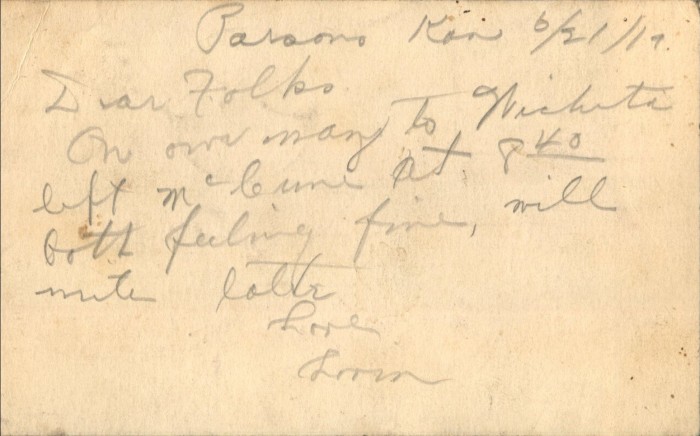 Parsons Kan 6/21/19
Dear Folks
On our way to Wichita
left McCune at 8 40
both feeling fine, will
write latte
Love
Loren